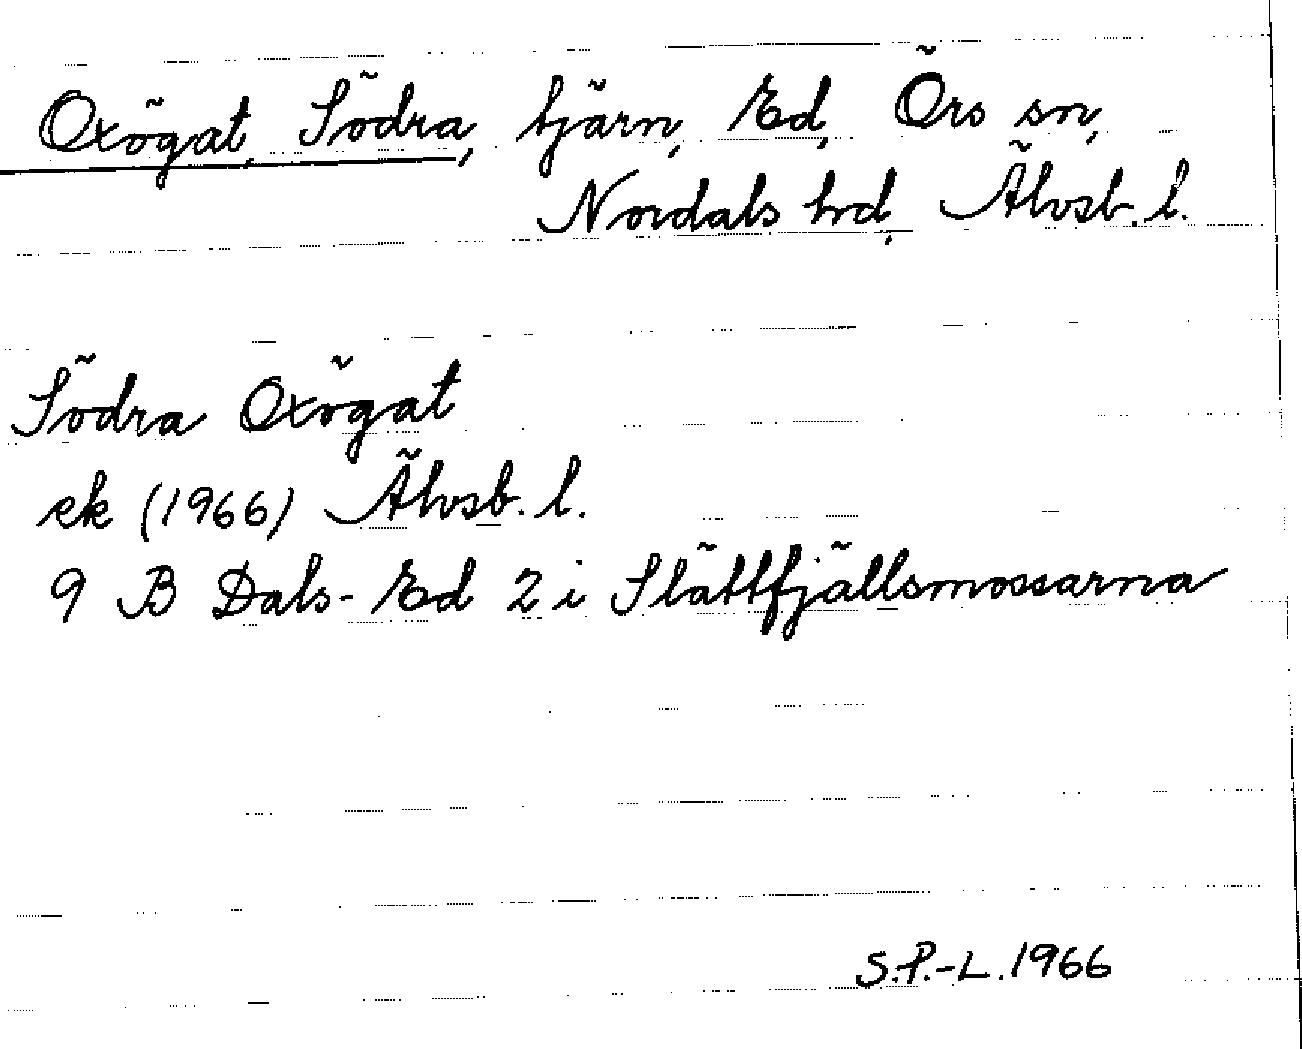 Oxögat, Södra, tjärn, Ed, Örs sn,
Nordals hd, Älvsb. l.
Södra Oxögat
ek (1966) Älvsb. l.
9 B Dals-Ed 2 i Slättfjällsmossarna
S.P.-L. 1966